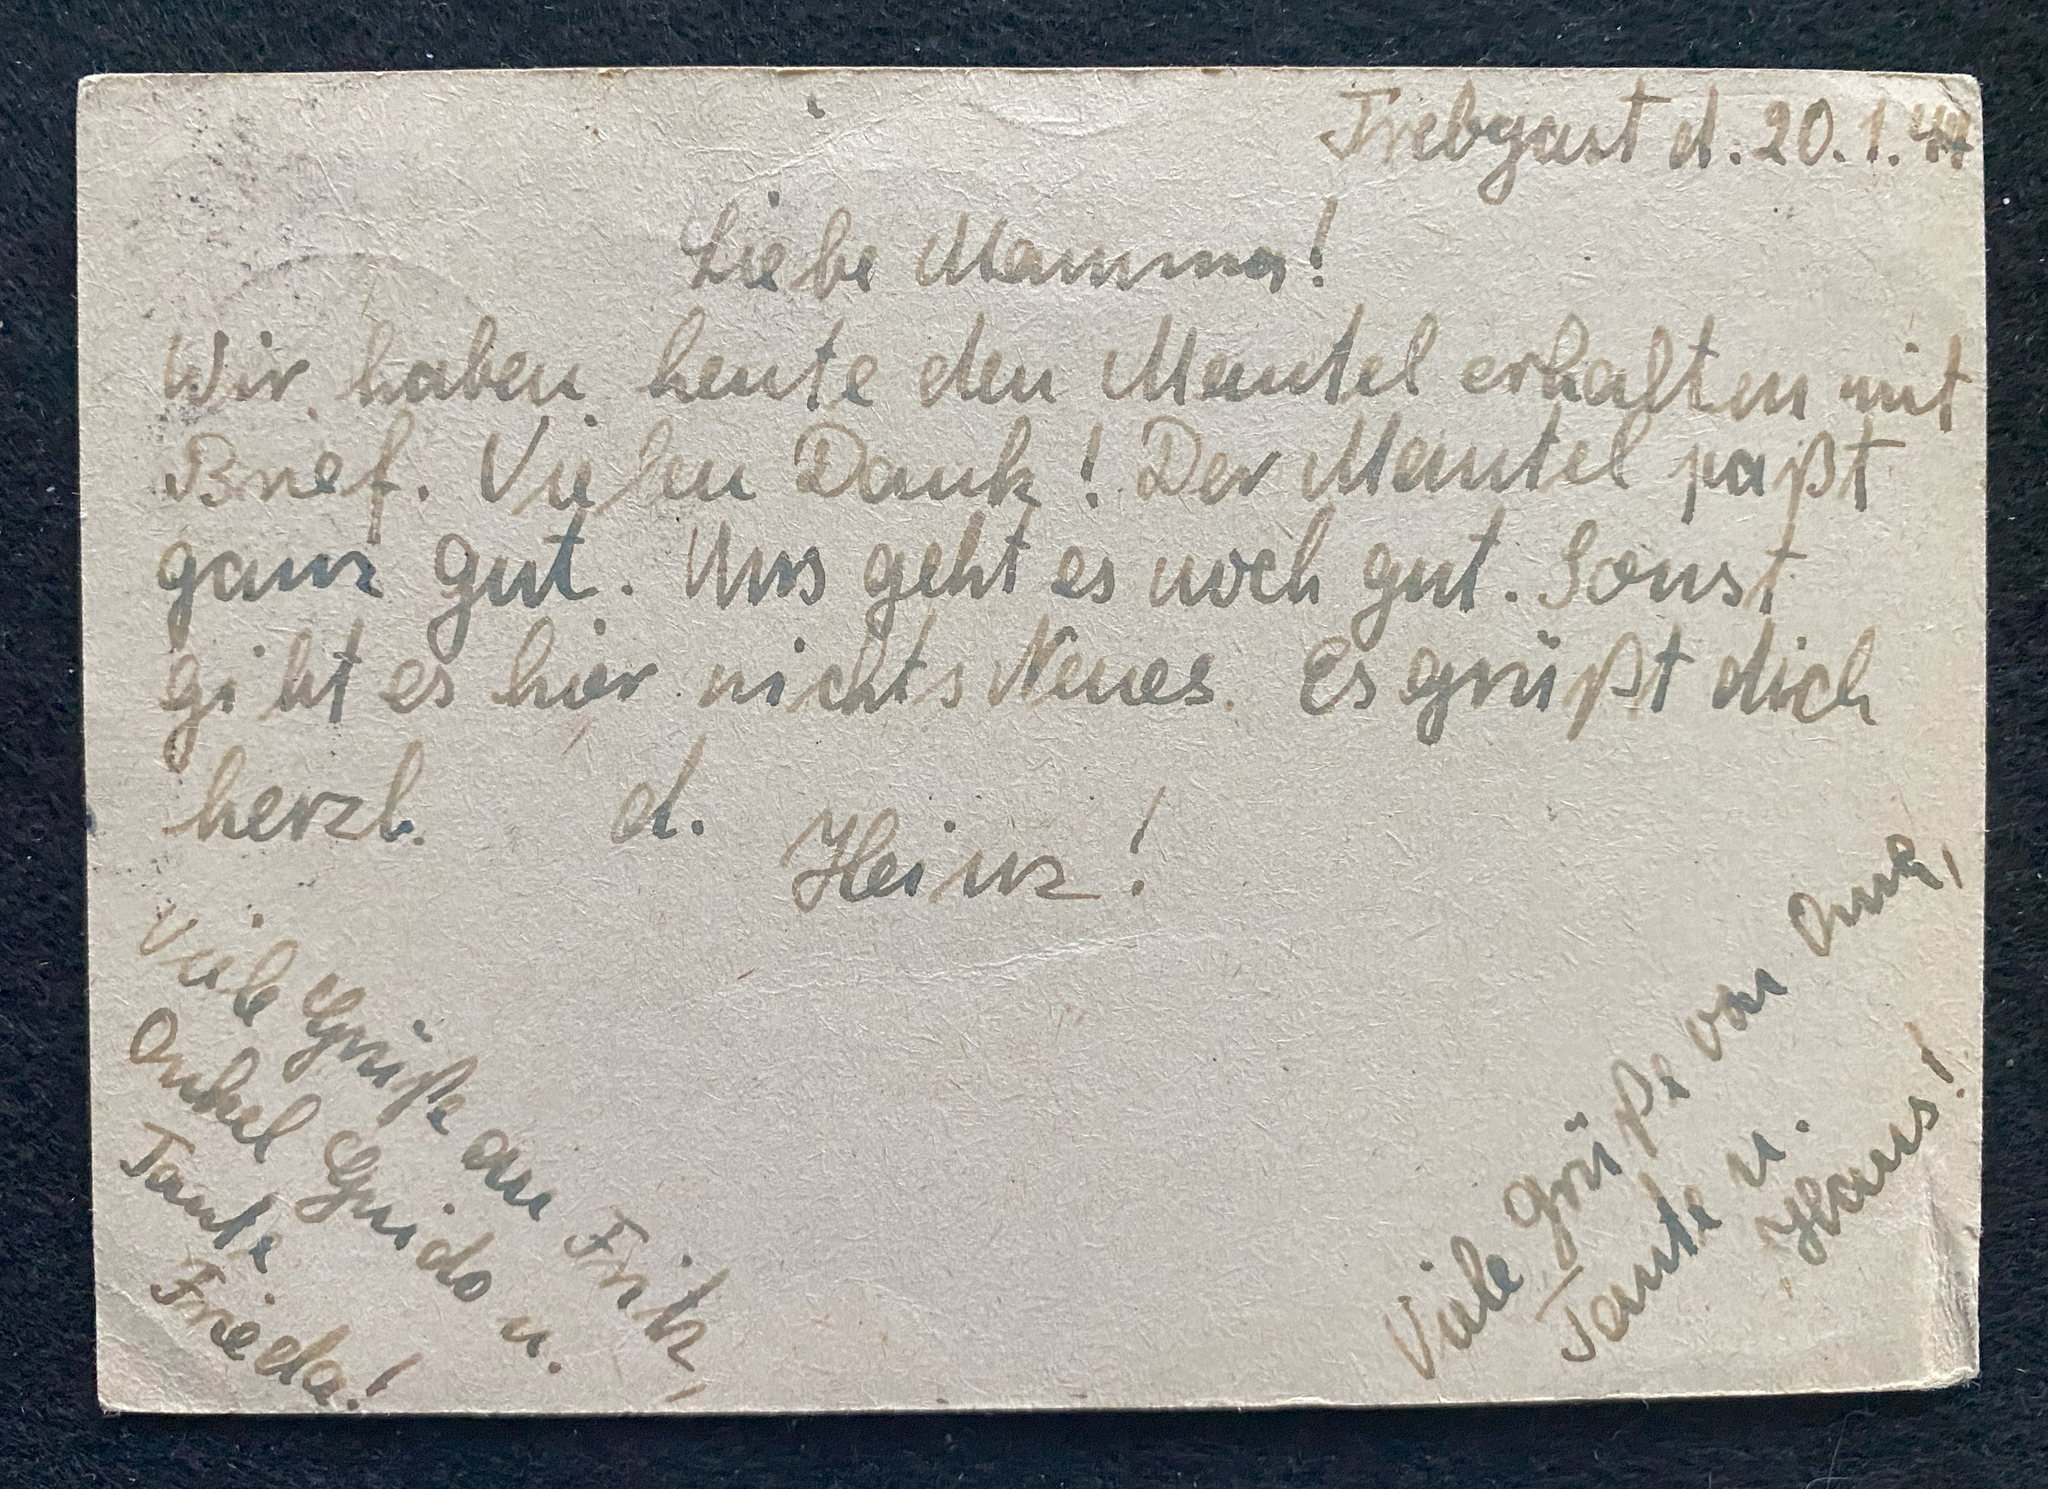 Trebgast d. 20.1.44
Liebe Mamma!
Wir haben heute den Mantel erhalten mit
Brief. Vielen Dank! Der Mantel paßt
ganz gut. Uns geht es noch gut. Sonst
gibt es hier nichts Neues. Es grüßt dich
herzl. d.
Heinz!
Viele Grüße an Fritz,
Onkel Guido u.
Tante
Frieda!
Viele Grüße von Oma,
Tante u.
Hans!